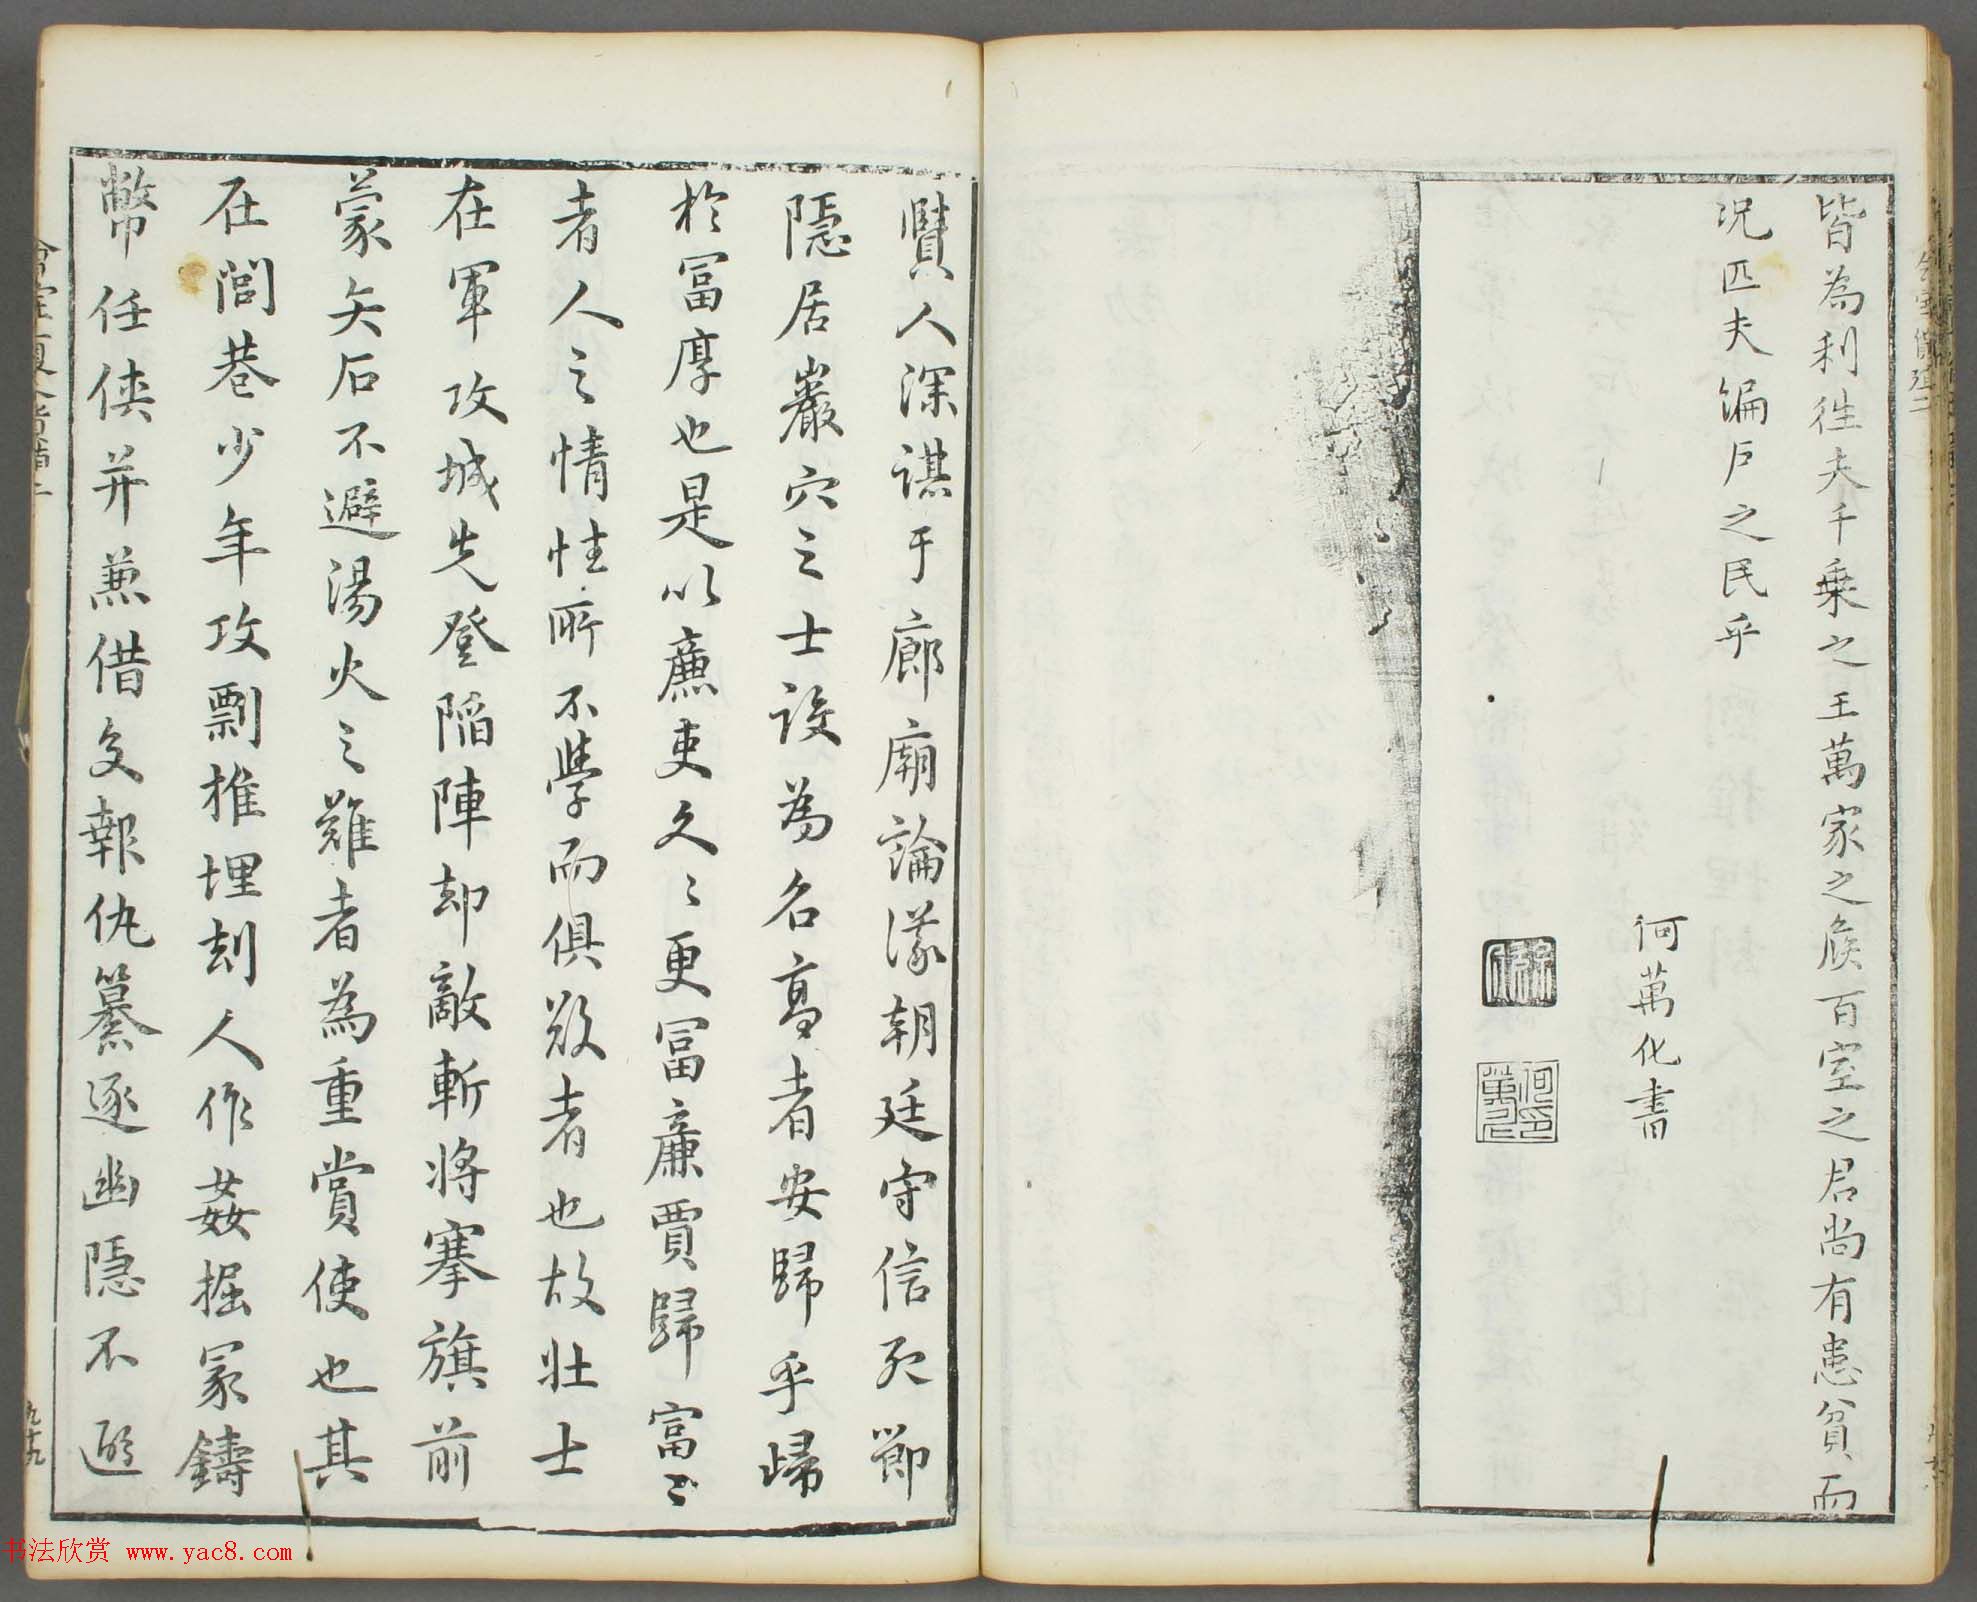 皆為利往夫千乗之王萬家之侯百室之君尚有患貧而
況匹夫編戶之民乎
何萬化書
賢人深謀于廊廟論議朝廷守信死節
隱居巖穴之士設為名高者安歸乎歸
於冨厚也是以廉吏久〻更冨廉賈歸富〻
者人之情性所不學而俱欲者也故壮士
在軍攻城先登陥陣却敵斬将搴旗前
蒙矢石不避湯火之難者為重賞使也其
在閭巷少年攻剽椎埋刦人作姦掘冡鑄
幣任俠并兼借交報仇篡逐幽隱不避
九十九
书法欣赏 www.yac8.com